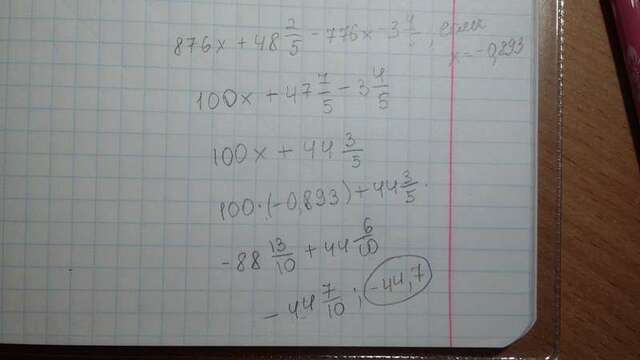 876x + 48 2/5 - 776x - 3 4/5, если
x = -0,893
100x + 47 7/5 - 3 4/5
100x + 44 3/5
100·(-0,893) + 44 3/5.
-88 13/10 + 44 6/10
-44 7/10 ; -44,7